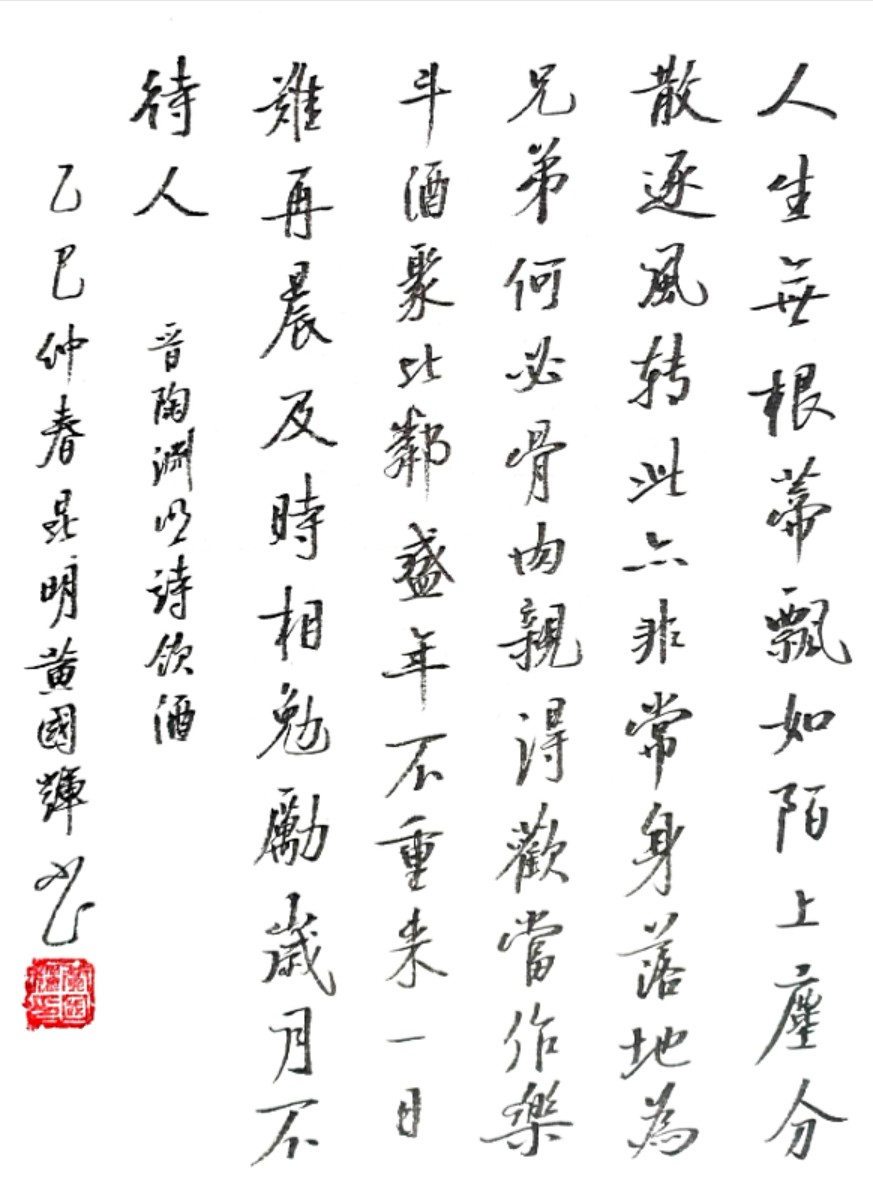 人生無根蒂飄如陌上塵分
散逐風转此亦非常身落地為
兄弟何必骨肉親得歡當作樂
斗酒聚比鄰盛年不重来一日
難再晨及時相勉勵歲月不
待人
晋陶渊明诗饮酒
乙巳仲春昆明黄國輝书